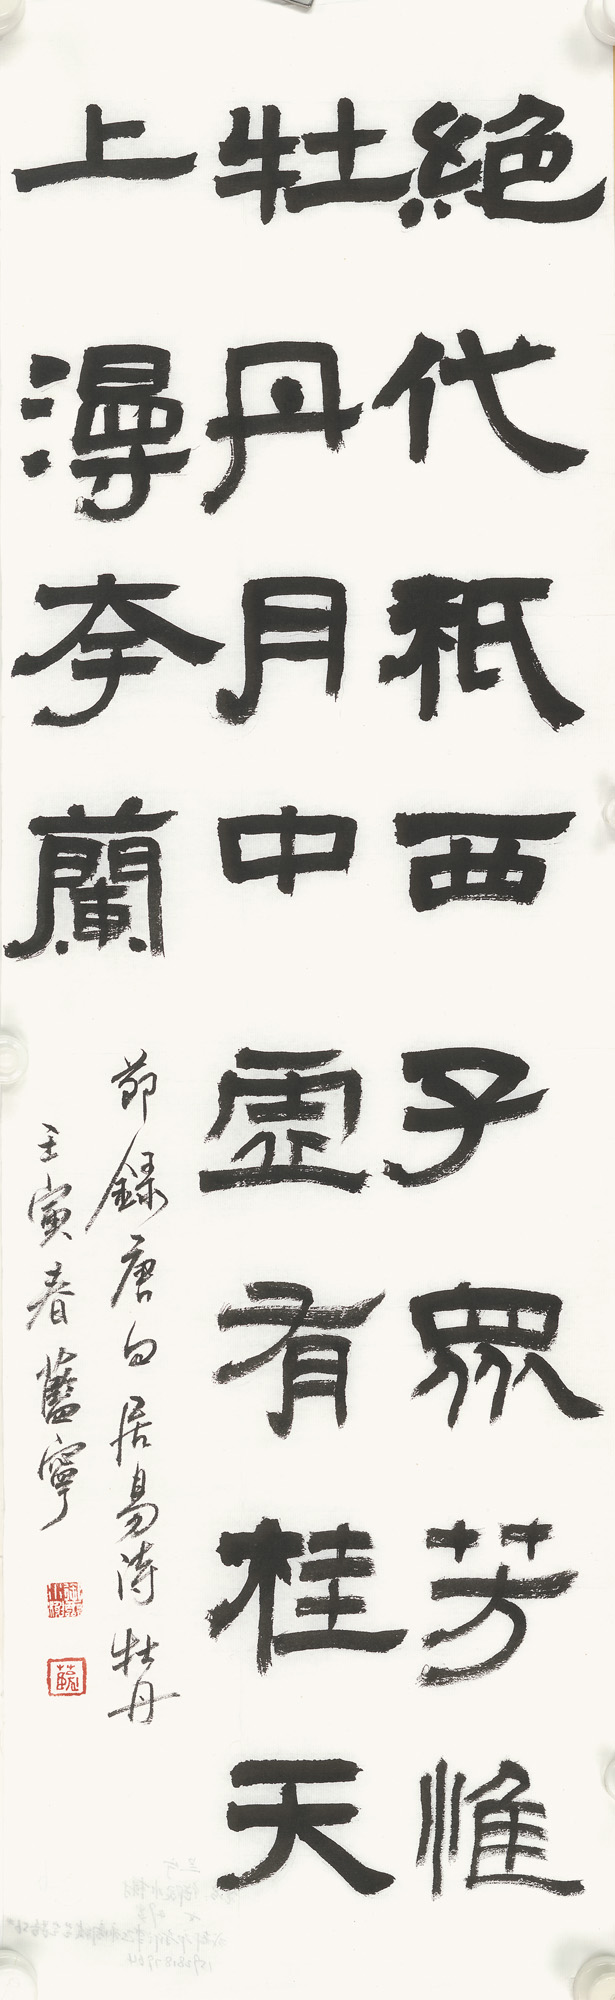 絕代衹西子眾芳惟
牡丹月中虛有桂天
上漫夸蘭
節錄唐白居易詩牡丹
壬寅春藍寧